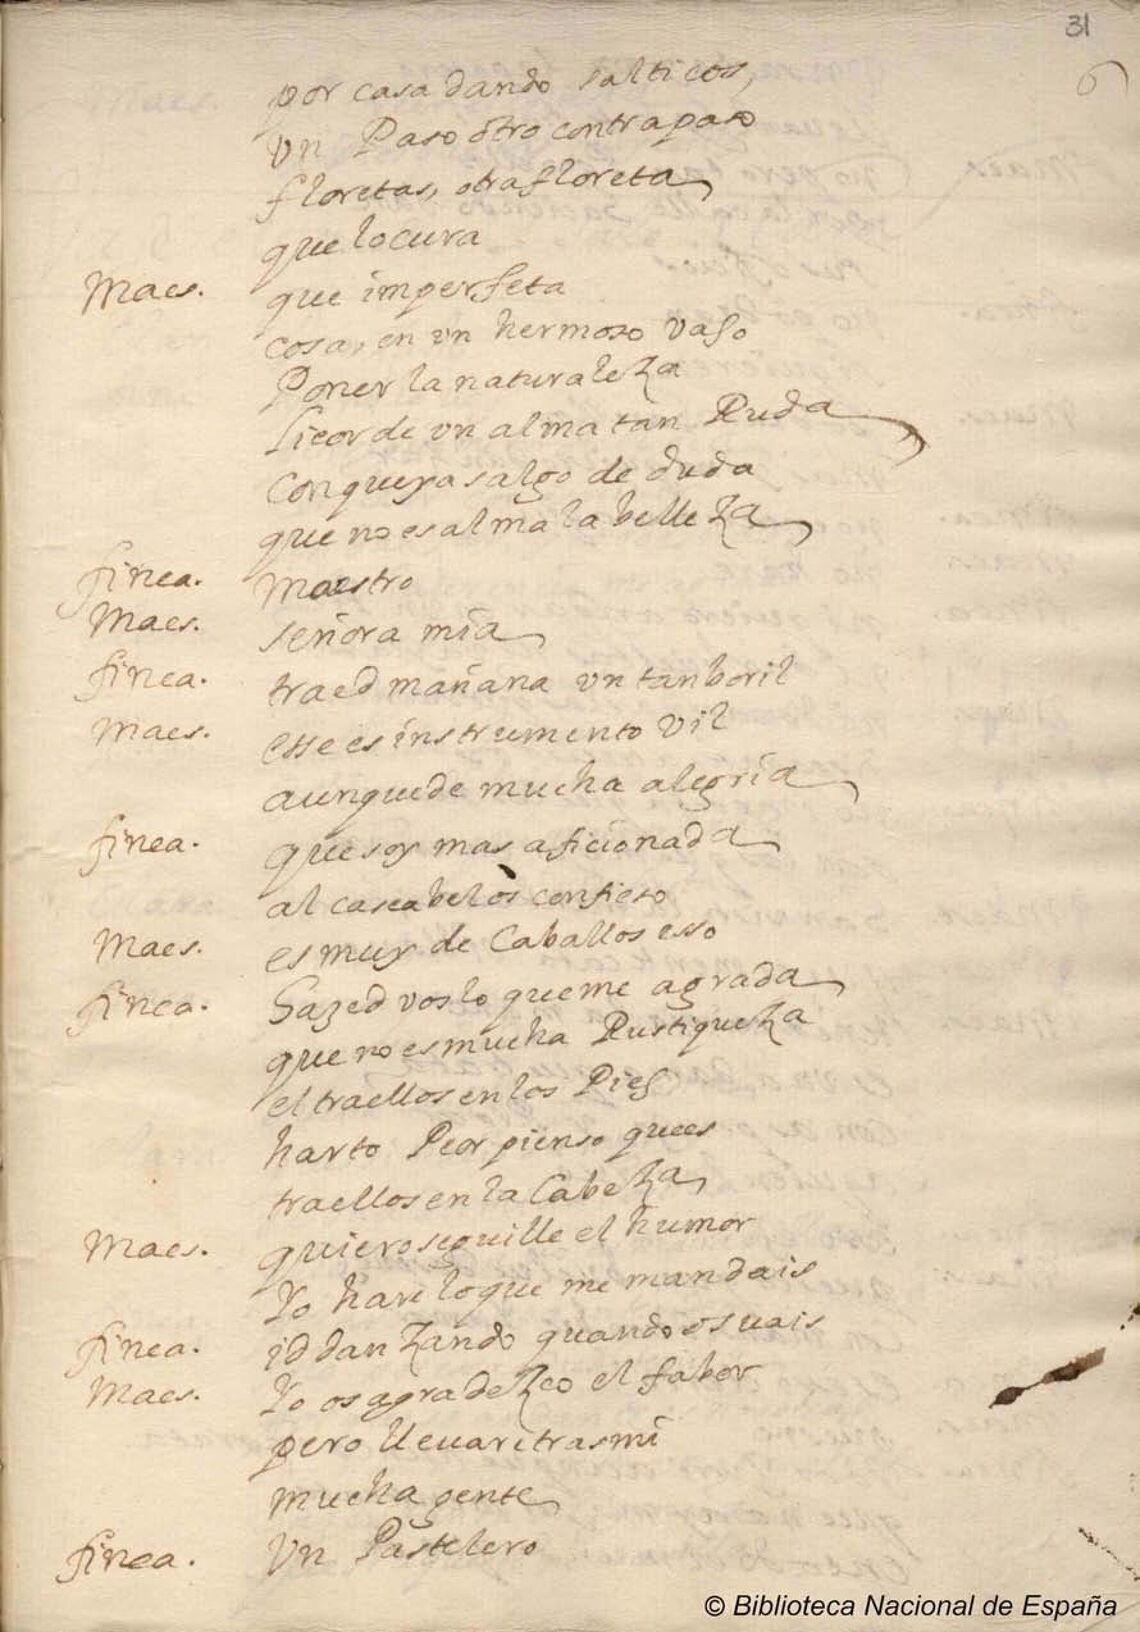 31
6
por casa dando salticos,
vn Paso otro contrapaso
floretas, otra floreta
que locura
Maes. que imperfeta
cosa, en vn hermoso vaso
Poner la naturaleza
licor de vn alma tan Ruda
con que ya salgo de duda
que no es alma la belleza
finea. Maestro
Maes. señora mía
finea. traed mañana vn tanboril
Maes. esse es instrumento vil
aunque de mucha alegría
finea. que soy mas aficionada
al cascabel òs confieso
Maes. es muy de Caballos esso
finea. hazed vos lo que me agrada
que no es mucha Rustiqueza
el traellos en los Pies
harto Peor pienso que es
traellos en la Cabeza
Maes. quiero seguille el humor
Yo hare lo que me mandais
finea. id danzando quando os vais
Maes. Yo os agradezco el fabor
pero lleuaré tras mí
mucha gente
finea. Vn Pastelero
© Biblioteca Nacional de España